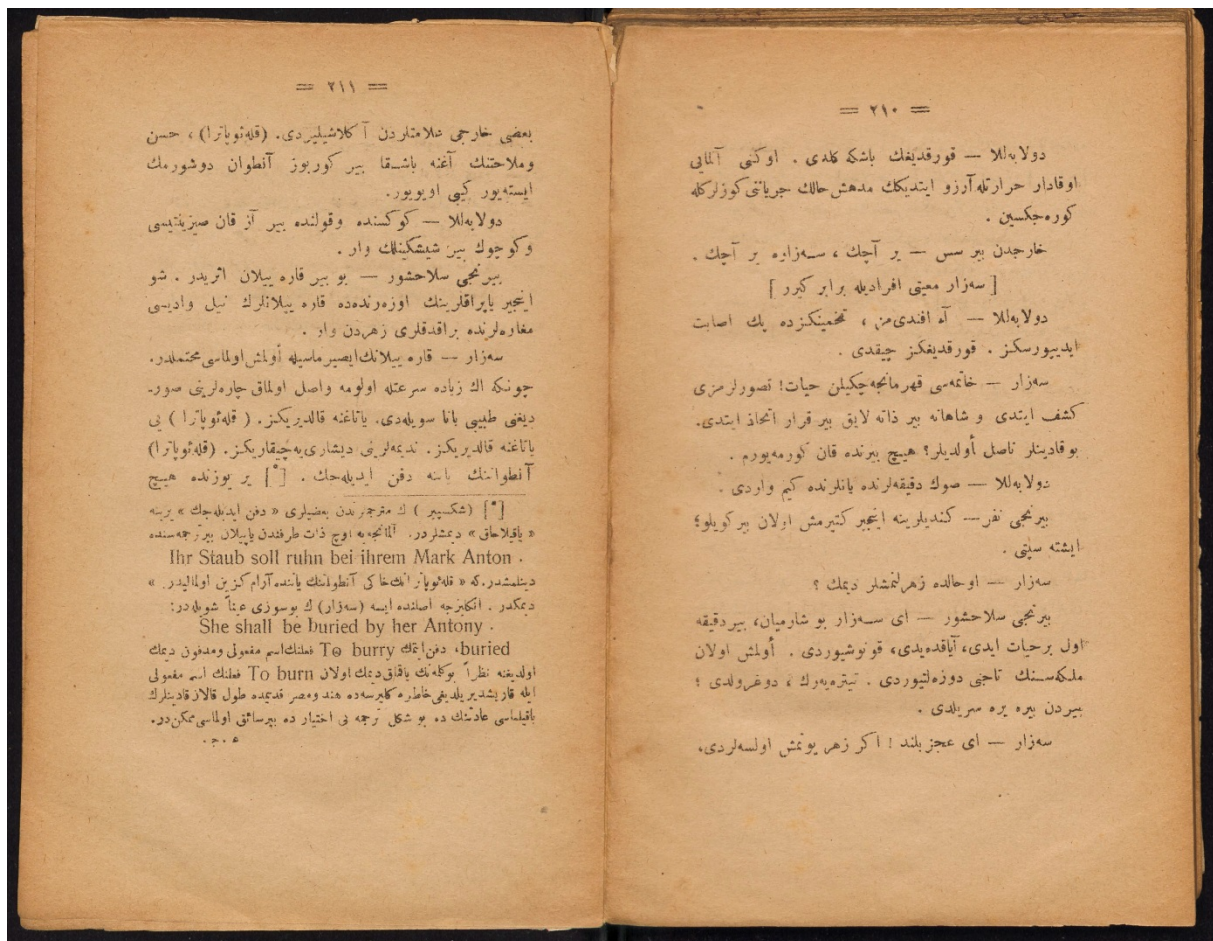 = ٢١٠ =
دولابه‌للا — قورقديغك باشكه كلدى . اوكنى آلمايى
اوقادار حرارتله آرزو ايتديكك مدهش حالك جرياننى كوزلركله
كوره‌جكسين .
خارجدن بير سس — ير آچك ، سه‌زاره ير آچك .
[ سه‌زار معيتى افراديله برابر كيرر ]
دولابه‌للا — آه افندى‌مز ، تخمينكزده پك اصابت
ايدييورسكز . قورقديغكز چيقدى .
سه‌زار — خاتمه‌سى قهرمانجه چكيلن حيات! تصورلرمزى
كشف ايتدى و شاهانه بير ذاته لايق بير قرار اتخاذ ايتدى.
بو قادينلر ناصل أولديلر؟ هيچ بيرنده قان كورمه‌يورم .
دولابه‌للا — صوك دقيقه‌لرنده يانلرنده كيم واردى .
بيرنجى نفر — كنديلرينه اينجير كتيرمش اولان بير كويلو؛
ايشته سپتى .
سه‌زار — اوحالده زهرلنمشلر ديمك ؟
بيرنجى سلاحشور — اى سه‌زار بو شارميان، بير دقيقه
اول بر حيات ايدى، آياقده‌يدى، قونوشيوردى . أولمش اولان
ملكه‌سنك تاجنى دوزه‌لتيوردى . تيتره‌يه‌رك ، دوغرولدى ؛
بيردن بيره يره سريلدى .
سه‌زار — اى عجز بلند ! اكر زهر يوتمش اولسه‌لردى،
= ٢١١ =
بعضى خارجى علامتلردن آكلاشيليردى. (قله‌ئوپاترا) ، حسن
وملاحتنك آغنه باشقا بير كوربوز آنطوان دوشورمك
ايسته‌يور كيى اويويور.
دولابه‌للا — كوكسنده وقولنده بير آز قان صيزينتيسى
وكوچوك بير شيشكينلك وار .
بيرنجى سلاحشور — بو بير قاره ييلان اثريدر . شو
اينجير ياپراقلرينك اوزه‌رنده‌ده قاره ييلانلرك نيل واديسى
مغاره‌لرنده براقدقلرى زهردن وار .
سه‌زار — قاره ييلانك ايصيرماسيله أولمش اولماسى محتملدر.
چونكه اك زياده سرعتله اولومه واصل اولماق چاره‌لرينى صور-
ديغنى طبيبى بانا سويله‌دى. ياتاغنه قالديريكز. ( قله‌ئوپاترا ) يى
ياتاغنه قالديريكز. نديمه‌لرينى ديشارى‌يه چيقاريكز. (قله‌ئوپاترا)
آنطوانك يانينه دفن ايديله‌جك . [*] ير يوزنده هيچ
[*] (شكسپير) ك مترجملرندن بعضيلرى « دفن ايديله‌جك » يرينه
« ياقيلاجاق » ديمشلردر. آلمانجه‌يه اوچ ذات طرفندن ياپيلان بير ترجمه‌سنده
Ihr Staub soll ruhn bei ihrem Mark Anton .
دينلمشدر. كه « قله‌ئوپاترانك خاكى آنطوانك ياننده آرام كزين اولماليدر »
ديمكدر . انكليزجه اصلنده ايسه (سه‌زار) ك بو سوزى عيناً شويله‌در:
She shall be buried by her Antony .
buried، دفن ايتمك To burry فعلنك اسم مفعولى ومدفون ديمك
اولديغنه نظراً بو كلمه‌نك ياقماق ديمك اولان To burn فعلنك اسم مفعولى
ايله قاريشديريلديغى خاطره كليرسه‌ده هند ومصر قديمده طول قالان قادينلرك
ياقيلماسى عادتنك ده بو شكل ترجمه يى اختيار ده بير سائق اولماسى ممكن‌در.
ع . ج.